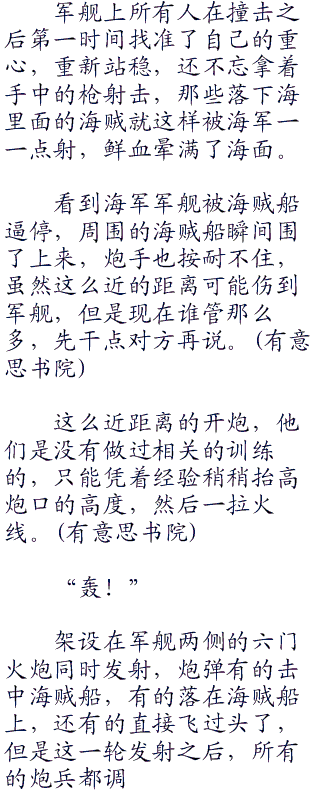 军舰上所有人在撞击之
后第一时间找准了自己的重
心，重新站稳，还不忘拿着
手中的枪射击，那些落下海
里面的海贼就这样被海军一
一点射，鲜血晕满了海面。
看到海军军舰被海贼船
逼停，周围的海贼船瞬间围
了上来，炮手也按耐不住，
虽然这么近的距离可能伤到
军舰，但是现在谁管那么
多，先干点对方再说。（有意
思书院）
这么近距离的开炮，他
们是没有做过相关的训练
的，只能凭着经验稍稍抬高
炮口的高度，然后一拉火
线。（有意思书院）
“轰！”
架设在军舰两侧的六门
火炮同时发射，炮弹有的击
中海贼船，有的落在海贼船
上，还有的直接飞过头了，
但是这一轮发射之后，所有
的炮兵都调